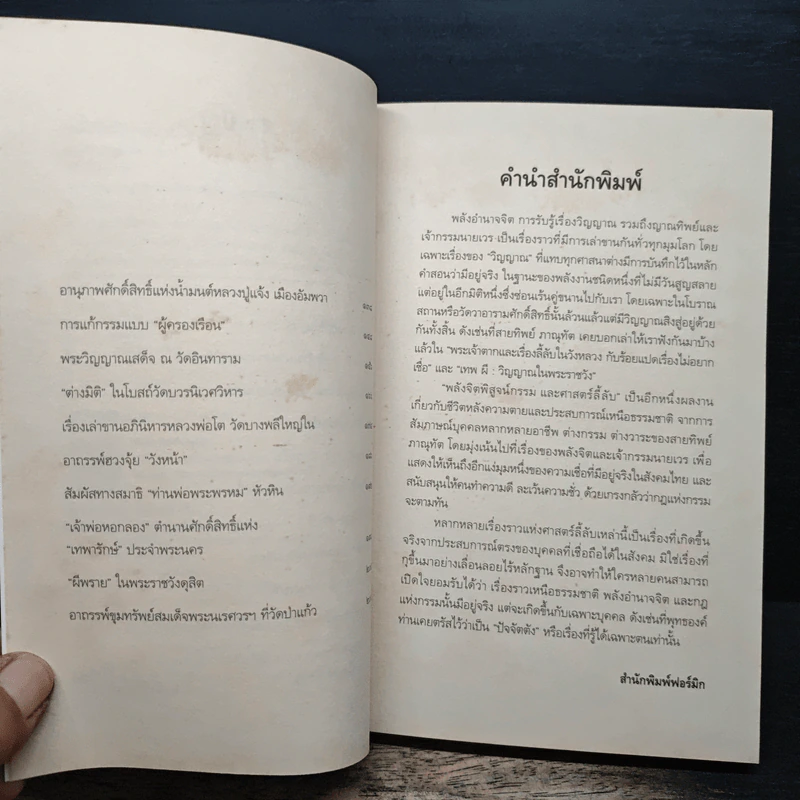 อานุภาพศักดิ์สิทธิ์แห่งน้ำมนต์หลวงปู่แจ้ง เมืองอัมพวา
การแก้กรรมแบบ “ผู้ครองเรือน”
พระวิญญาณเสด็จ ณ วัดอินทาราม
“ต่างมิติ” ในโบสถ์วัดบวรนิเวศวิหาร
เรื่องเล่าขานอภินิหารหลวงพ่อโต วัดบางพลีใหญ่ใน
อาถรรพ์ฮวงจุ้ย “วังหน้า”
สัมผัสทางสมาธิ “ท่านพ่อพระพรหม” หัวหิน
“เจ้าพ่อหอกลอง” ตำนานศักดิ์สิทธิ์แห่ง
“เทพารักษ์” ประจำพระนคร
“ผีพราย” ในพระราชวังดุสิต
อาถรรพ์ขุมทรัพย์สมเด็จพระนเรศวรฯ ที่วัดป่าแก้ว
คำนำสำนักพิมพ์
พลังอำนาจจิต การรับรู้เรื่องวิญญาณ รวมถึงญาณทิพย์และ
เจ้ากรรมนายเวร เป็นเรื่องราวที่มีการเล่าขานกันทั่วทุกมุมโลก โดย
เฉพาะเรื่องของ “วิญญาณ” ที่แทบทุกศาสนาต่างมีการบันทึกไว้ในหลัก
คำสอนว่ามีอยู่จริง ในฐานะของพลังงานชนิดหนึ่งที่ไม่มีวันสูญสลาย
แต่อยู่ในอีกมิติหนึ่งซึ่งซ่อนเร้นคู่ขนานไปกับเรา โดยเฉพาะในโบราณ
สถานหรือวัดวาอารามศักดิ์สิทธิ์นั้นล้วนแล้วแต่มีวิญญาณสิงสู่อยู่ด้วย
กันทั้งสิ้น ดังเช่นที่สายทิพย์ ภาณุทัต เคยบอกเล่าให้เราฟังกันมาบ้าง
แล้วใน “พระเจ้าตากและเรื่องลี้ลับในวังหลวง กับร้อยแปดเรื่องไม่อยาก
เชื่อ” และ “เทพ ผี : วิญญาณในพระราชวัง”
“พลังจิตพิสูจน์กรรม และศาสตร์ลี้ลับ” เป็นอีกหนึ่งผลงาน
เกี่ยวกับชีวิตหลังความตายและประสบการณ์เหนือธรรมชาติ จากการ
สัมภาษณ์บุคคลหลากหลายอาชีพ ต่างกรรม ต่างวาระของสายทิพย์
ภาณุทัต โดยมุ่งเน้นไปที่เรื่องของพลังจิตและเจ้ากรรมนายเวร เพื่อ
แสดงให้เห็นถึงอีกแง่มุมหนึ่งของความเชื่อที่มีอยู่จริงในสังคมไทย และ
สนับสนุนให้คนทำความดี ละเว้นความชั่ว ด้วยเกรงกลัวว่ากฎแห่งกรรม
จะตามทัน
หลากหลายเรื่องราวแห่งศาสตร์ลี้ลับเหล่านี้เป็นเรื่องที่เกิดขึ้น
จริงจากประสบการณ์ตรงของบุคคลที่เชื่อถือได้ในสังคม มิใช่เรื่องที่
กุขึ้นมาอย่างเลื่อนลอยไร้หลักฐาน จึงอาจทำให้ใครหลายคนสามารถ
เปิดใจยอมรับได้ว่า เรื่องราวเหนือธรรมชาติ พลังอำนาจจิต และกฎ
แห่งกรรมนั้นมีอยู่จริง แต่จะเกิดขึ้นกับเฉพาะบุคคล ดังเช่นที่พุทธองค์
ท่านเคยตรัสไว้ว่าเป็น “ปัจจัตตัง” หรือเรื่องที่รู้ได้เฉพาะตนเท่านั้น
สำนักพิมพ์ฟอร์มิก